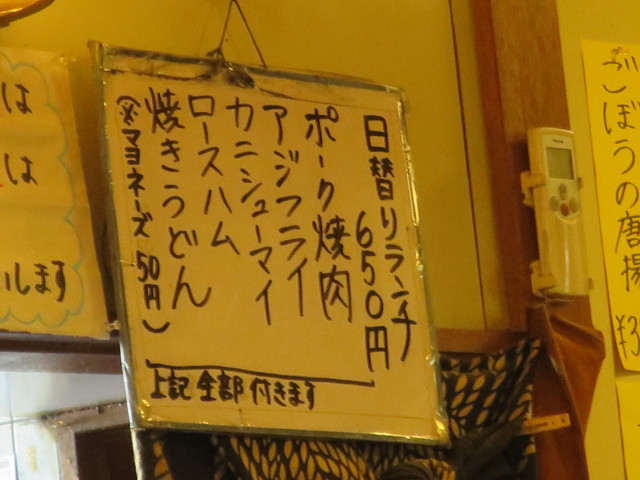 日替りランチ
650円
ポーク焼肉
アジフライ
カニシューマイ
ロースハム
焼きうどん
(※マヨネーズ 50円)
上記全部付きます
ごぼうの唐揚
は
は
します